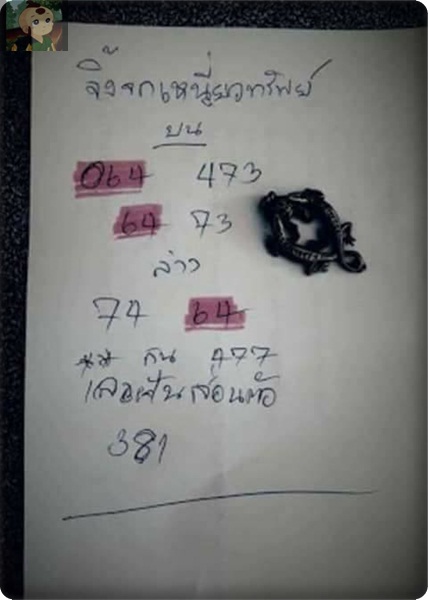 จิ้งจกเหนี่ยวทรัพย์
บน
064 473
64 73
ล่าง
74 64
** กัน 477
เลขฝันส่อนตัว
381